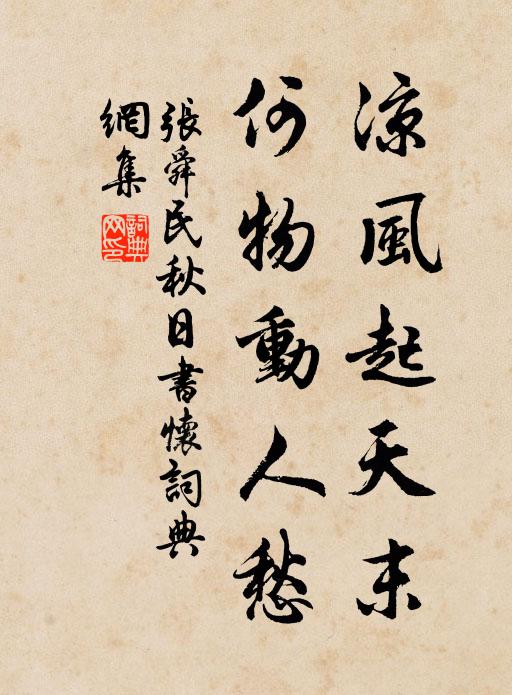 凉風起天末
何物動人愁
張舜民秋日書懷詞典
網集
詞典
网印